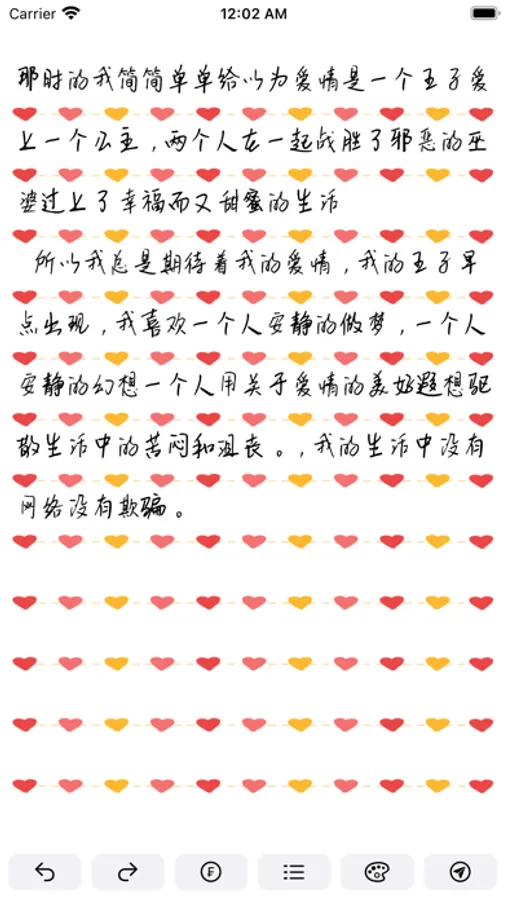 Carrier 12:02 AM
那时的我简简单单给以为爱情是一个王子爱
上一个公主，两个人在一起战胜了邪恶的巫
婆过上了幸福而又甜蜜的生活
所以我总是期待着我的爱情，我的王子早
点出现，我喜欢一个人安静的做梦，一个人
安静的幻想一个人用关于爱情的美好遐想驱
散生活中的苦闷和沮丧。，我的生活中没有
网络没有欺骗。